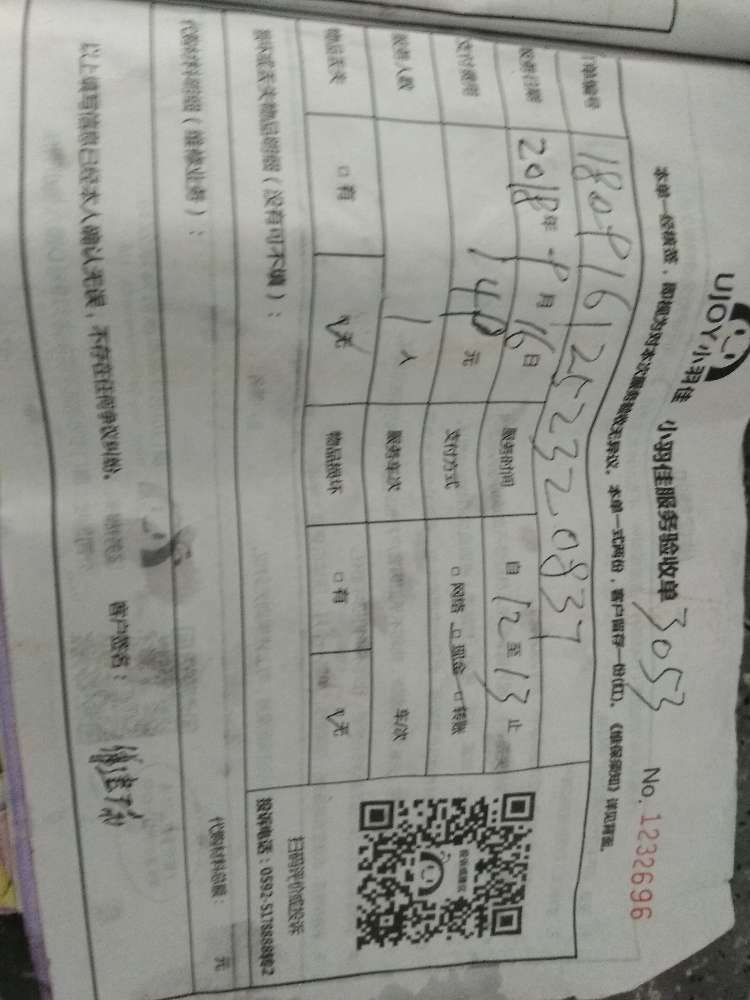 UJOY小羽佳 小羽佳服务验收单 3053 No. 1232696
本单一经核签，即视为对本次服务验收无异议。本单一式两份，客户留存一份(红)。《维保须知》详见背面。
单编号 1809161252320837
服务日期 2018年 9月 16日 服务时间 自 12 至 13 止
支付费用 140 元 支付方式 □ 网络 □ 现金 □ 转账
服务人数 1 人 服务车次 车/次
物品丢失 □ 有 √无 物品损坏 □ 有 √无
损坏或丢失物品明细（没有可不填）：
扫码评价或投诉
投诉电话：0592-5178888转2
代购材料明细（维修业务）：
代购材料总额： 元
以上填写信息已经本人确认无误，不存在任何争议纠纷。
客户签名：